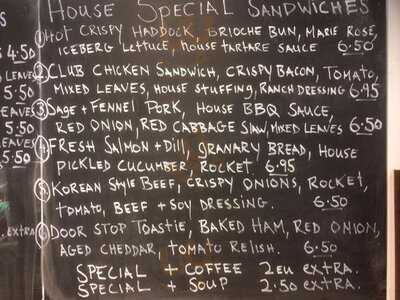 House Special Sandwiches
① Hot Crispy Haddock, Brioche Bun, Marie Rose,
Iceberg Lettuce, House Tartare Sauce 6.50
② Club Chicken Sandwich, Crispy Bacon, Tomato,
Mixed Leaves, House Stuffing, Ranch Dressing 6.95
③ Sage + Fennel Pork, House BBQ Sauce,
Red Onion, Red Cabbage Slaw, Mixed Leaves 6.50
④ Fresh Salmon + Dill, Granary Bread, House
Pickled Cucumber, Rocket 6.95
⑤ Korean Style Beef, Crispy Onions, Rocket,
Tomato, Beef + Soy Dressing. 6.50
⑥ Door Stop Toastie, Baked Ham, Red Onion,
Aged Cheddar, Tomato Relish. 6.50
Special + Coffee 2eu extra.
Special + Soup 2.50 extra.
4.50
Leaves
5.50
Leaves
5.50
Leaves
5.50
extra